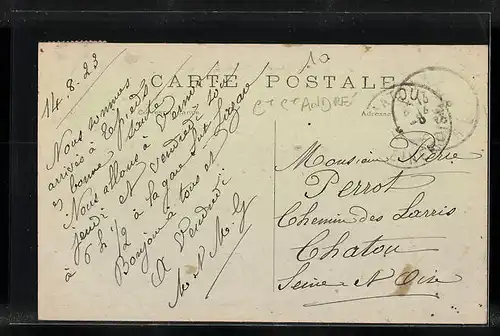 14.8.23
1a
CARTE POSTALE
Ct St ANDRÉ
Adresse
Nous sommes
arrivés à
bonne
Nous allons à Vernon
jeudi et vendredi soir
à 6 h 1/2 à la gare St Lazare
Bonjour à tous et
A Vendredi
M. G
Monsieur
Perrot
Chemin des Larris
Chatou
Seine et Oise